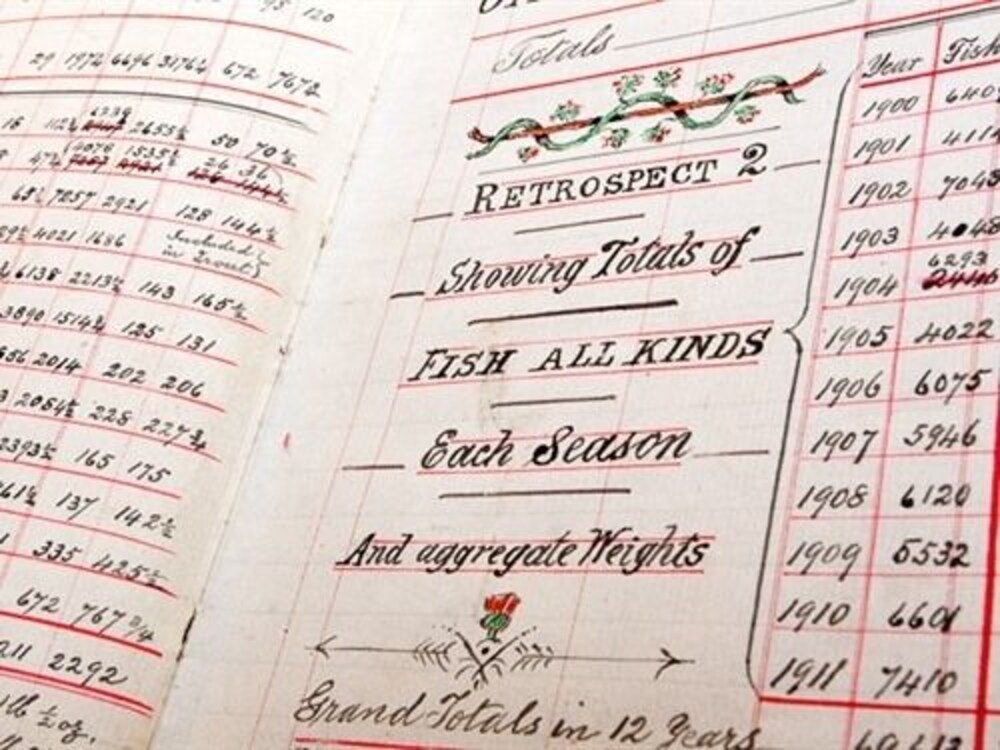 95 120
29 1972 6696 3176¼ 672 767¾
6339
18 112½ 2655½ 50 70½
4078 1535½ 26 36
65½ 7257 2921 128 144½
4021 1686 Included
in Trout
6138 2213½ 143 165½
3890 1514¾ 125 131
656 2014 202 206
2054½ 225 227¾
2393½ 165 175
61½ 137 142½
335 425½
672 767 3/4
211 2292
lb ½ oz.
Totals
RETROSPECT 2
Showing Totals of
FISH ALL KINDS
Each Season
And aggregate Weights
Grand Totals in 12 Years
Year Fish
1900 640
1901 411
1902 7043
1903 4048
6293
1904 2446
1905 4022
1906 6075
1907 5946
1908 6120
1909 5532
1910 6601
1911 7410